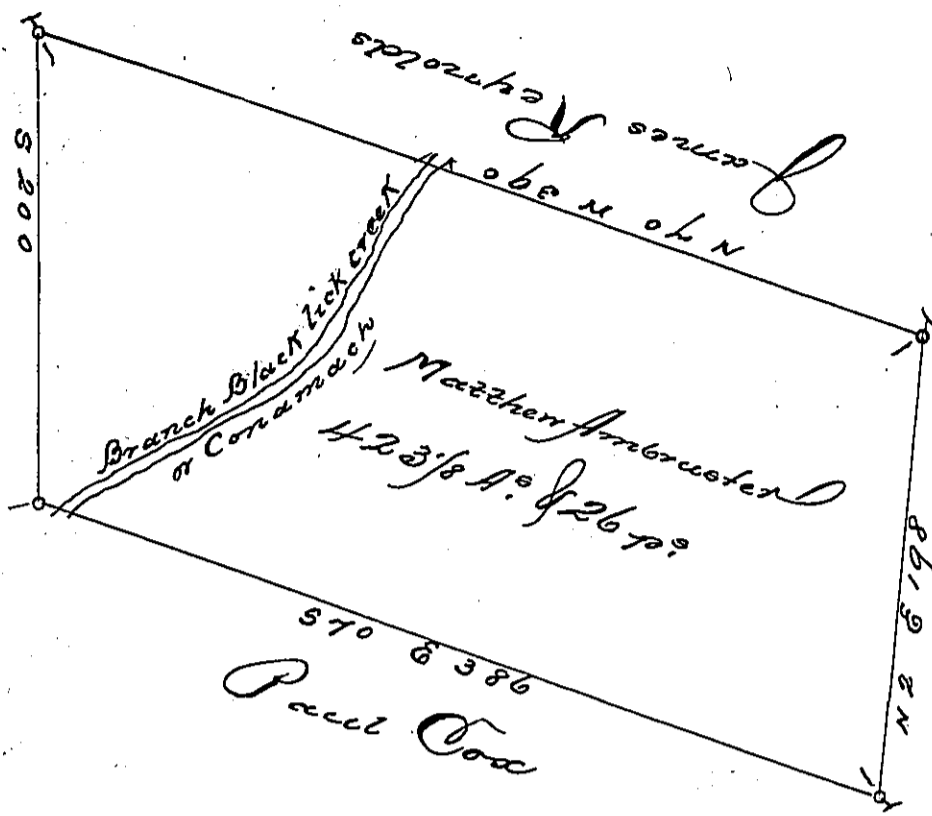 James Reynolds
N 70 W 390
S 200
Branch Black lick creek
or Conamach
Matthew Ambruster
423 1/8 As. & 26 ps.
N 2 E 198
S 70 E 386
Paul Cox